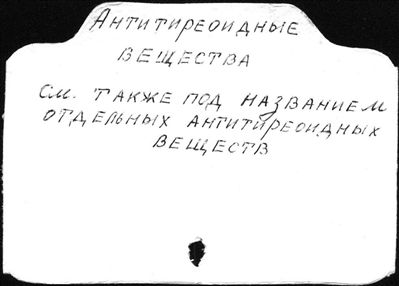 Антитиреоидные
вещества
см. также под названием
отдельных антитиреоидных
веществ